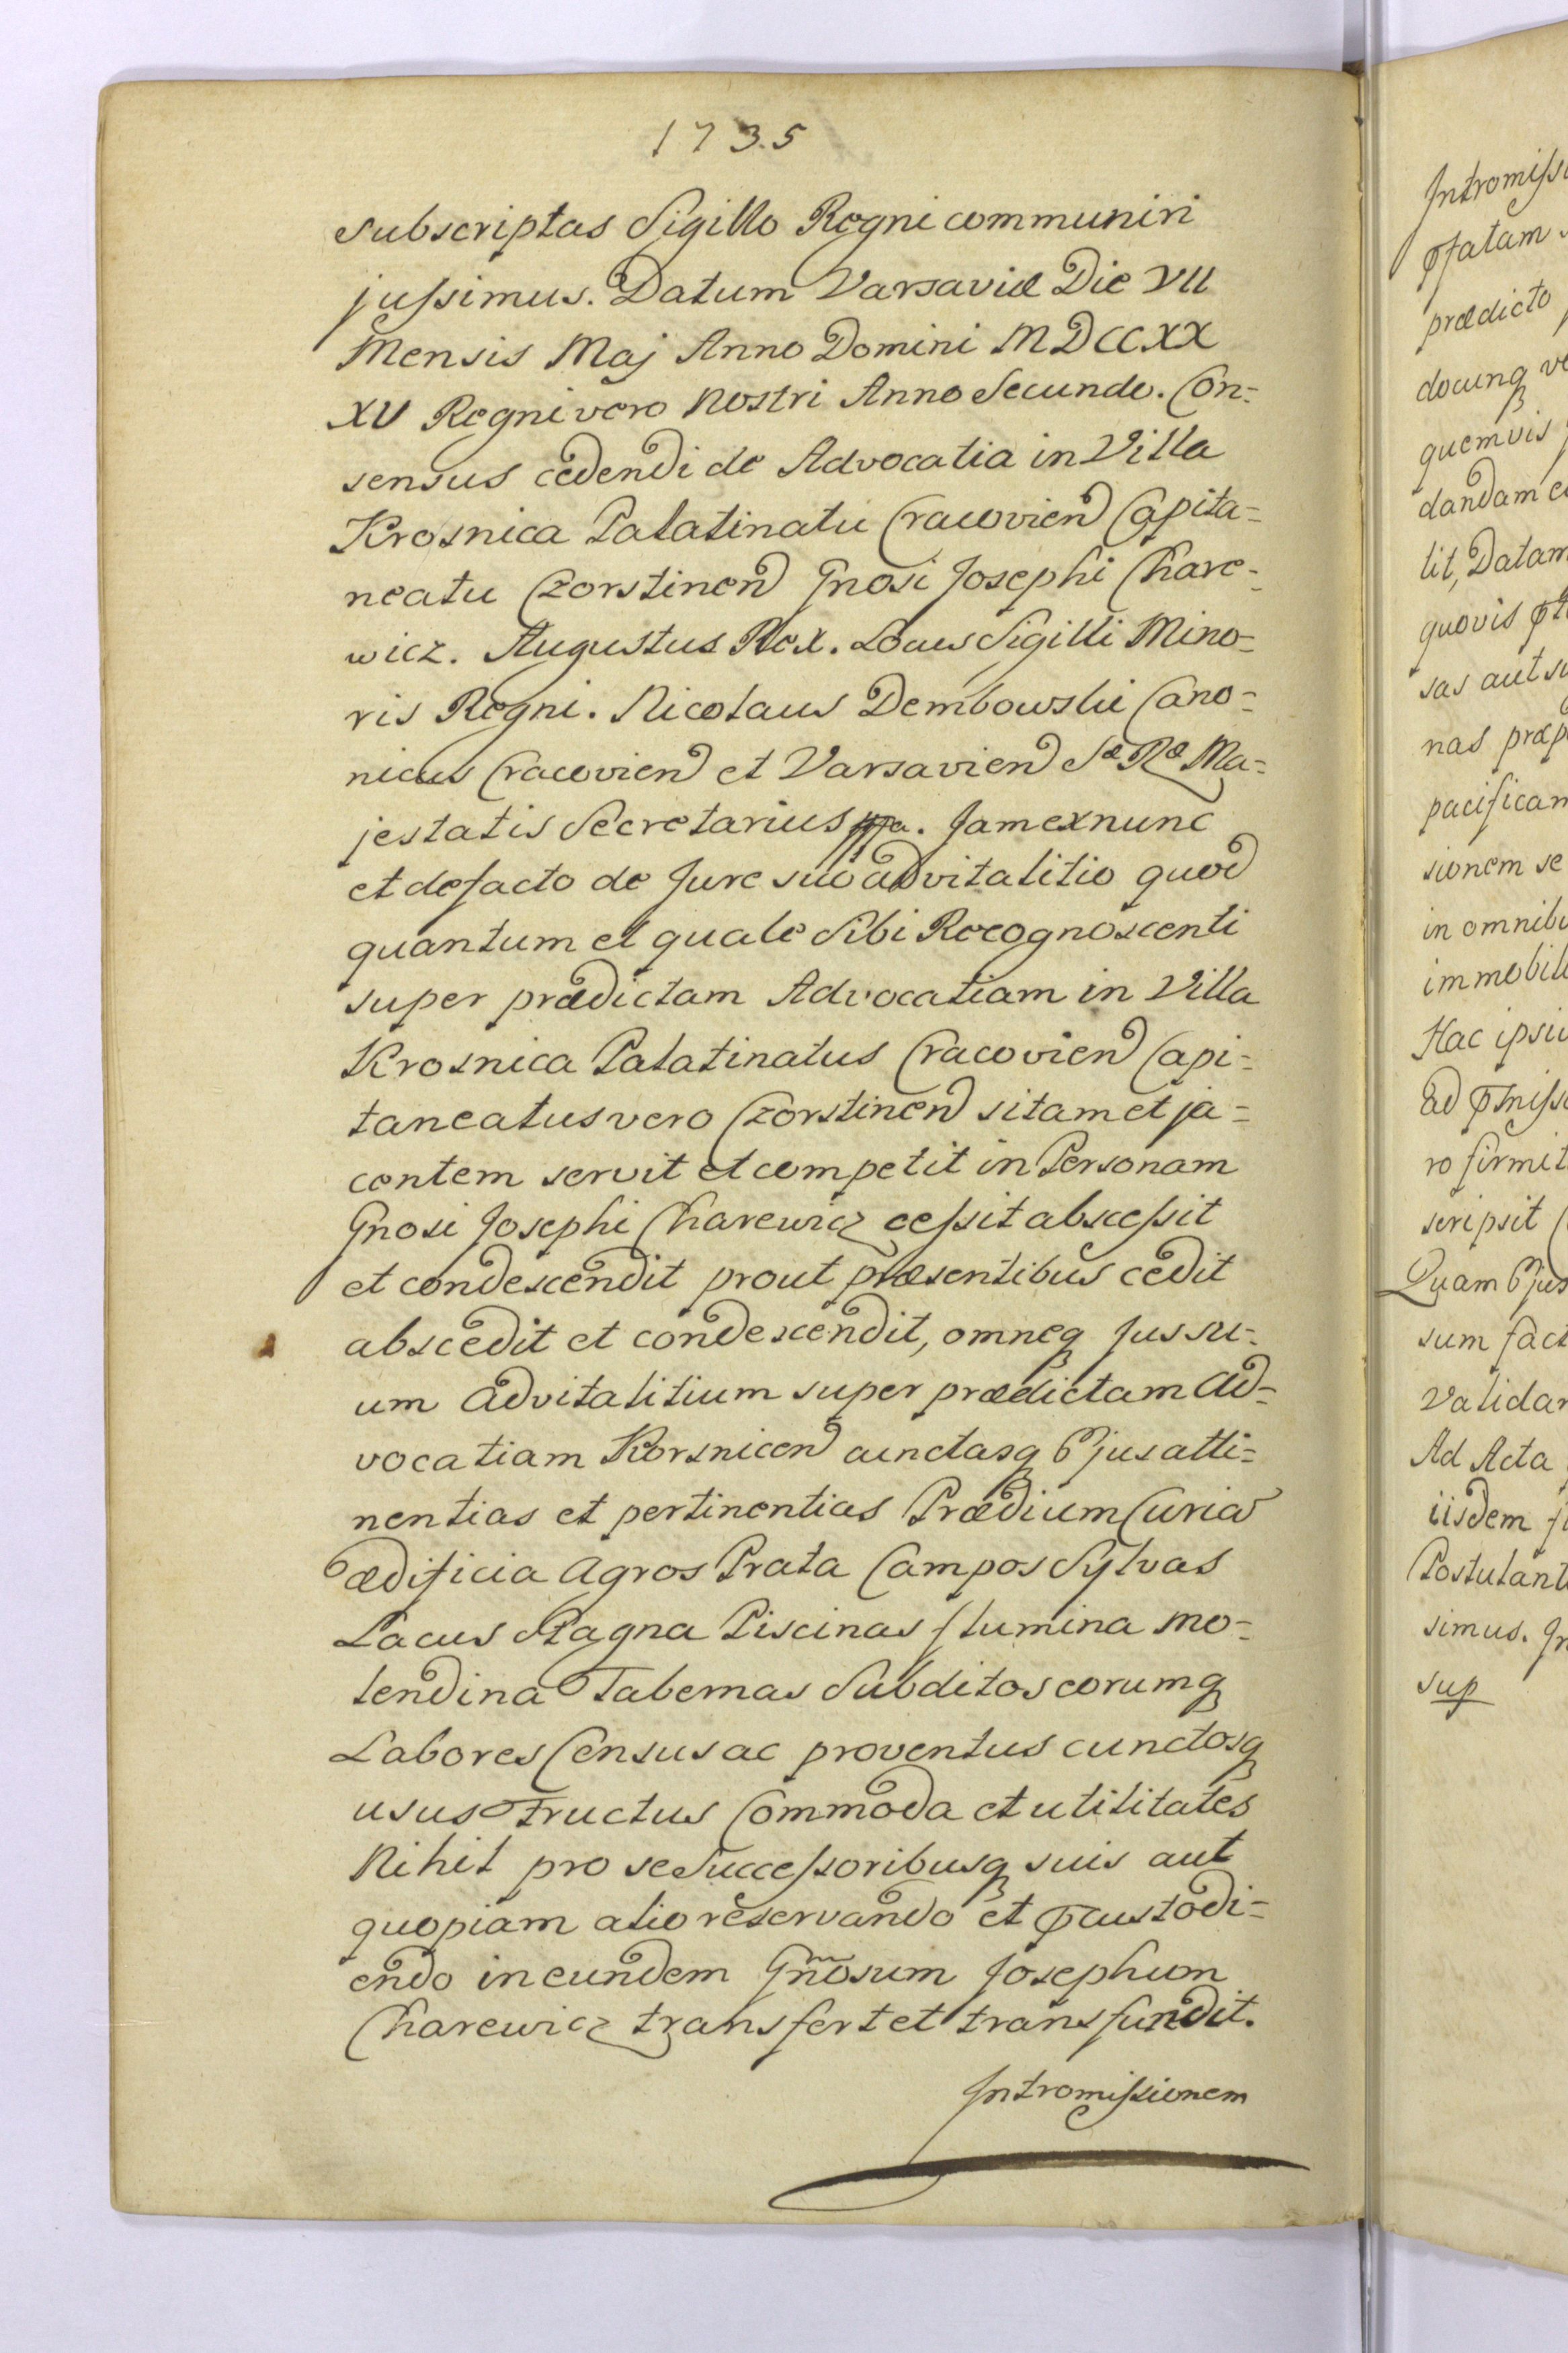 1735
subscriptas Sigillo Regni communiri
jussimus. Datum Varsaviæ Die VII
Mensis Maj Anno Domini MDCCXX
XV Regni vero Nostri Anno Secundo. Con=
sensus cedendi de Advocatia in Villa
Krosnica Palatinatu Cracovien Capita=
neatu Czorstinen Gnosi Josephi Chare=
wicz. Augustus Rex. Locus Sigilli Mino=
ris Regni. Nicolaus Dembowski Cano=
nicus Cracovien et Varsavien Sæ Ræ Ma=
jestatis Secretarius mpa. Jam ex nunc
et de facto de Jure suo advitalitio quod
quantum et quale Sibi Recognoscenti
super prædictam Advocatiam in Villa
Krosnica Palatinatus Cracovien Capi=
taneatus vero Czorstinen sitam et ja=
centem servit et competit in Personam
Gnosi Josephi Charewicz cessit abscessit
et condescendit prout præsentibus cedit
abscedit et condescendit, omneq Jus su=
um advitalitium super prædictam Ad=
vocatiam Korsnicen cunctasq Ejus atti=
nentias et pertinentias Prædium Curia
ædificia Agros Prata Campos Sylvas
Lacus Stagna Piscinas flumina mo=
lendina Tabernas Subditos eorumq
Labores Census ac proventus cunctosq
usus Fructus Commoda et utilitates
Nihil pro se Successoribusq suis aut
quopiam alio reservando et pcustodi=
endo in eundem Gnosum Josephum
Charewicz transfert et transfundit.
Intromissionem
Intromissi
pfatam
prædicto
docunq ve
quemvis
dandam e
tit, Datam
quovis
sas aut su
nas præp
pacifican
sionem se
in omnibu
immobill
Hac ipsiu
ad
ro firmit
scripsit
Quam Ejus
sum fact
Validar
Ad Acta
iisdem
Postulant
simus. In
sup